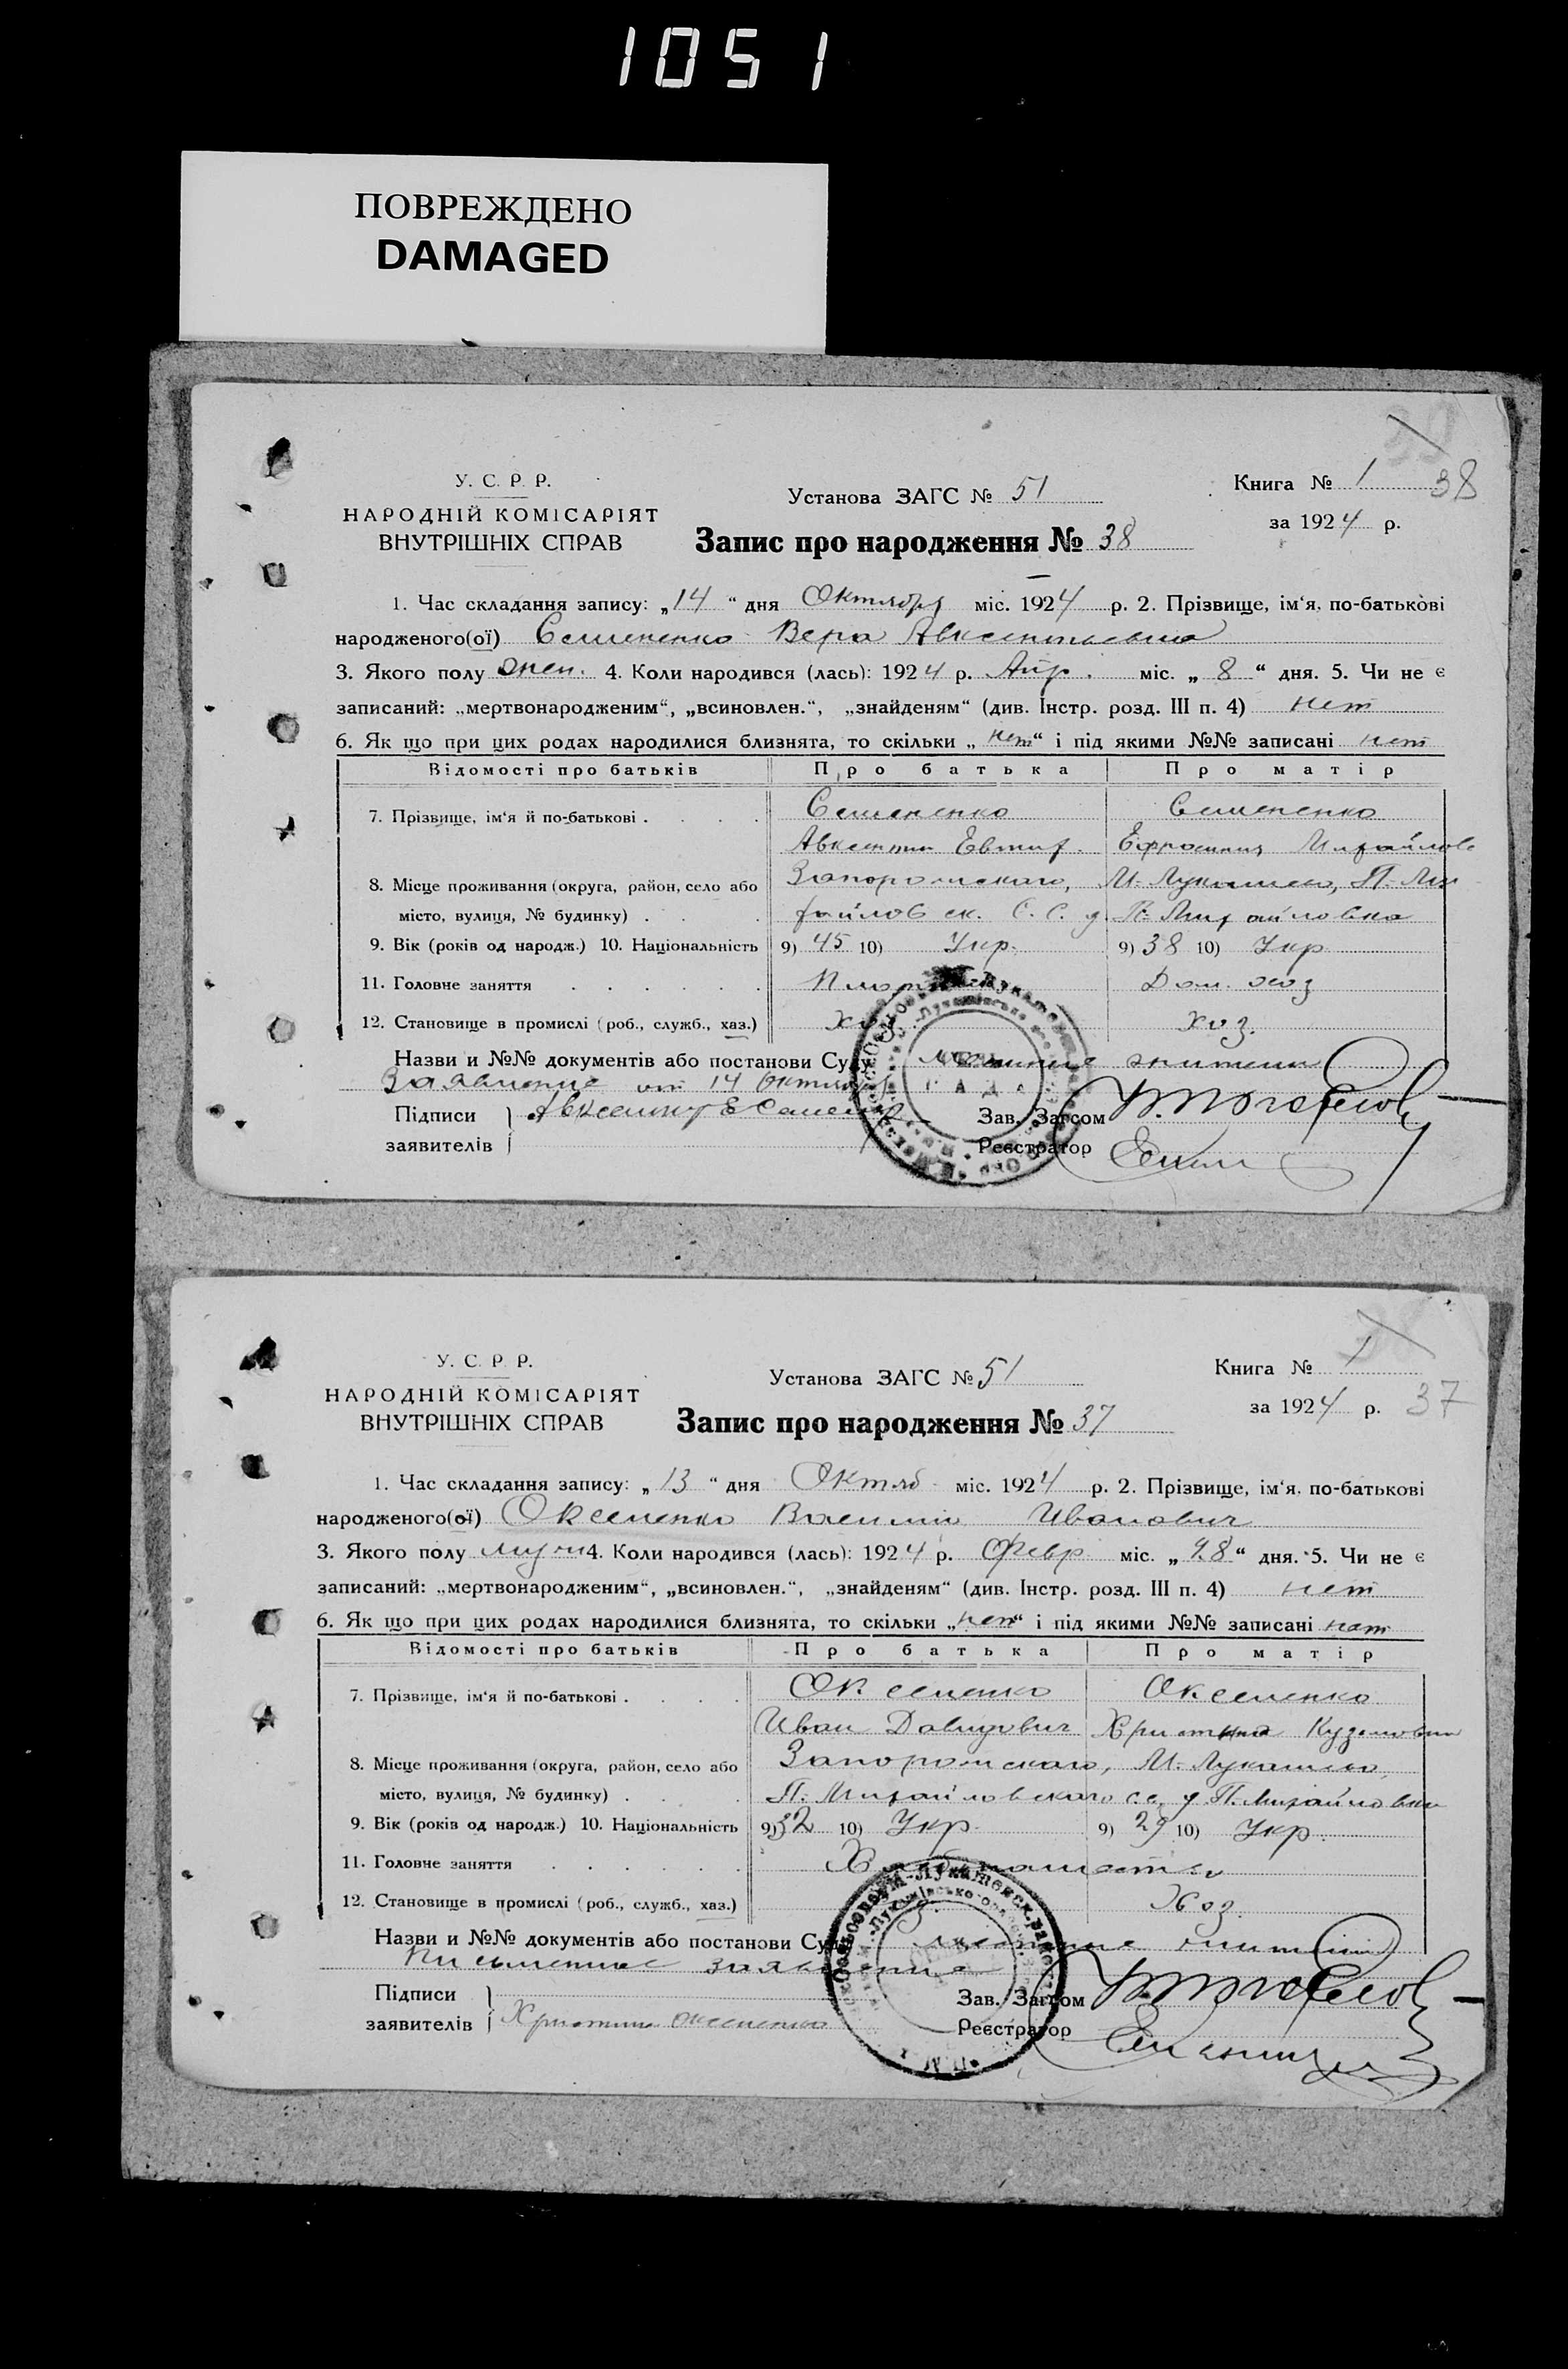 1051
ПОВРЕЖДЕНО
DAMAGED
У. С. Р. Р.
НАРОДНІЙ КОМІСАРІЯТ
ВНУТРІШНІХ СПРАВ
Установа ЗАГС № 51
Книга № 1
38
за 1924 р.
Запис про народження № 38
1. Час складання запису: „14“ дня Октября міс. 1924 р. 2. Прізвище, ім‘я, по-батькові
народженого(ої) Семененко Вера Авксентьевна
3. Якого полу жен. 4. Коли народився (лась): 1924 р. Апр. міс. „8“ дня. 5. Чи не є
записаний: „мертвонародженим“, „всиновлен.“, „знайденям“ (див. Інстр. розд. III п. 4) нет
6. Як що при цих родах народилися близнята, то скільки „нет“ і під якими №№ записані нет
Відомості про батьків Про батька Про матір
7. Прізвище, ім‘я й по-батькові . . . . Семененко Семененко
Авксентий Евтиф. Ефросиния Михайлов
8. Місце проживання (округа, район, село або Запорожскаго, М. Лукашево, П. Ми
місто, вулиця, № будинку) . . . хайловск. С. С. д. П. Михайловка
9. Вік (років од народж.) 10. Національність 9) 45 10) Укр. 9) 38 10) Укр
11. Головне заняття . . . . . . Дом. хоз
12. Становище в промислі (роб., служб., хаз.) Хоз. хоз.
Назви и №№ документів або постанови Суду
Заявление от 14 Октября
Підписи Авксентий Е Семен
заявителів
Зав. Загсом
Реєстратор
У. С. Р. Р.
НАРОДНІЙ КОМІСАРІЯТ
ВНУТРІШНІХ СПРАВ
Установа ЗАГС № 51
Книга № 1
за 1924 р. 37
Запис про народження № 37
1. Час складання запису: „13“ дня Октяб міс. 1924 р. 2. Прізвище, ім‘я, по-батькові
народженого(ої) Оксененко Василий Иванович
3. Якого полу муж 4. Коли народився (лась): 1924 р. Февр міс. „ “ дня. 5. Чи не є
записаний: „мертвонародженим“, „всиновлен.“, „знайденям“ (див. Інстр. розд. III п. 4) нет
6. Як що при цих родах народилися близнята, то скільки „нет“ і під якими №№ записані нет
Відомості про батьків Про батька Про матір
7. Прізвище, ім‘я й по-батькові . . . . Оксененко Оксененко
Иван Давидович Христина Куземовн
8. Місце проживання (округа, район, село або Запорожскаго, М. Лукашево,
місто, вулиця, № будинку) . . . П. Михайловскаго с.с. д. П. Михайловка
9. Вік (років од народж.) 10. Національність 9) 32 10) Укр. 9) 29 10) Укр.
11. Головне заняття . . . . . . Хлебопашество
12. Становище в промислі (роб., служб., хаз.) Хоз.
Назви и №№ документів або постанови Суду
Письменное заявление
Підписи
заявителів Христина Оксененко
Зав. Загсом
Реєстратор